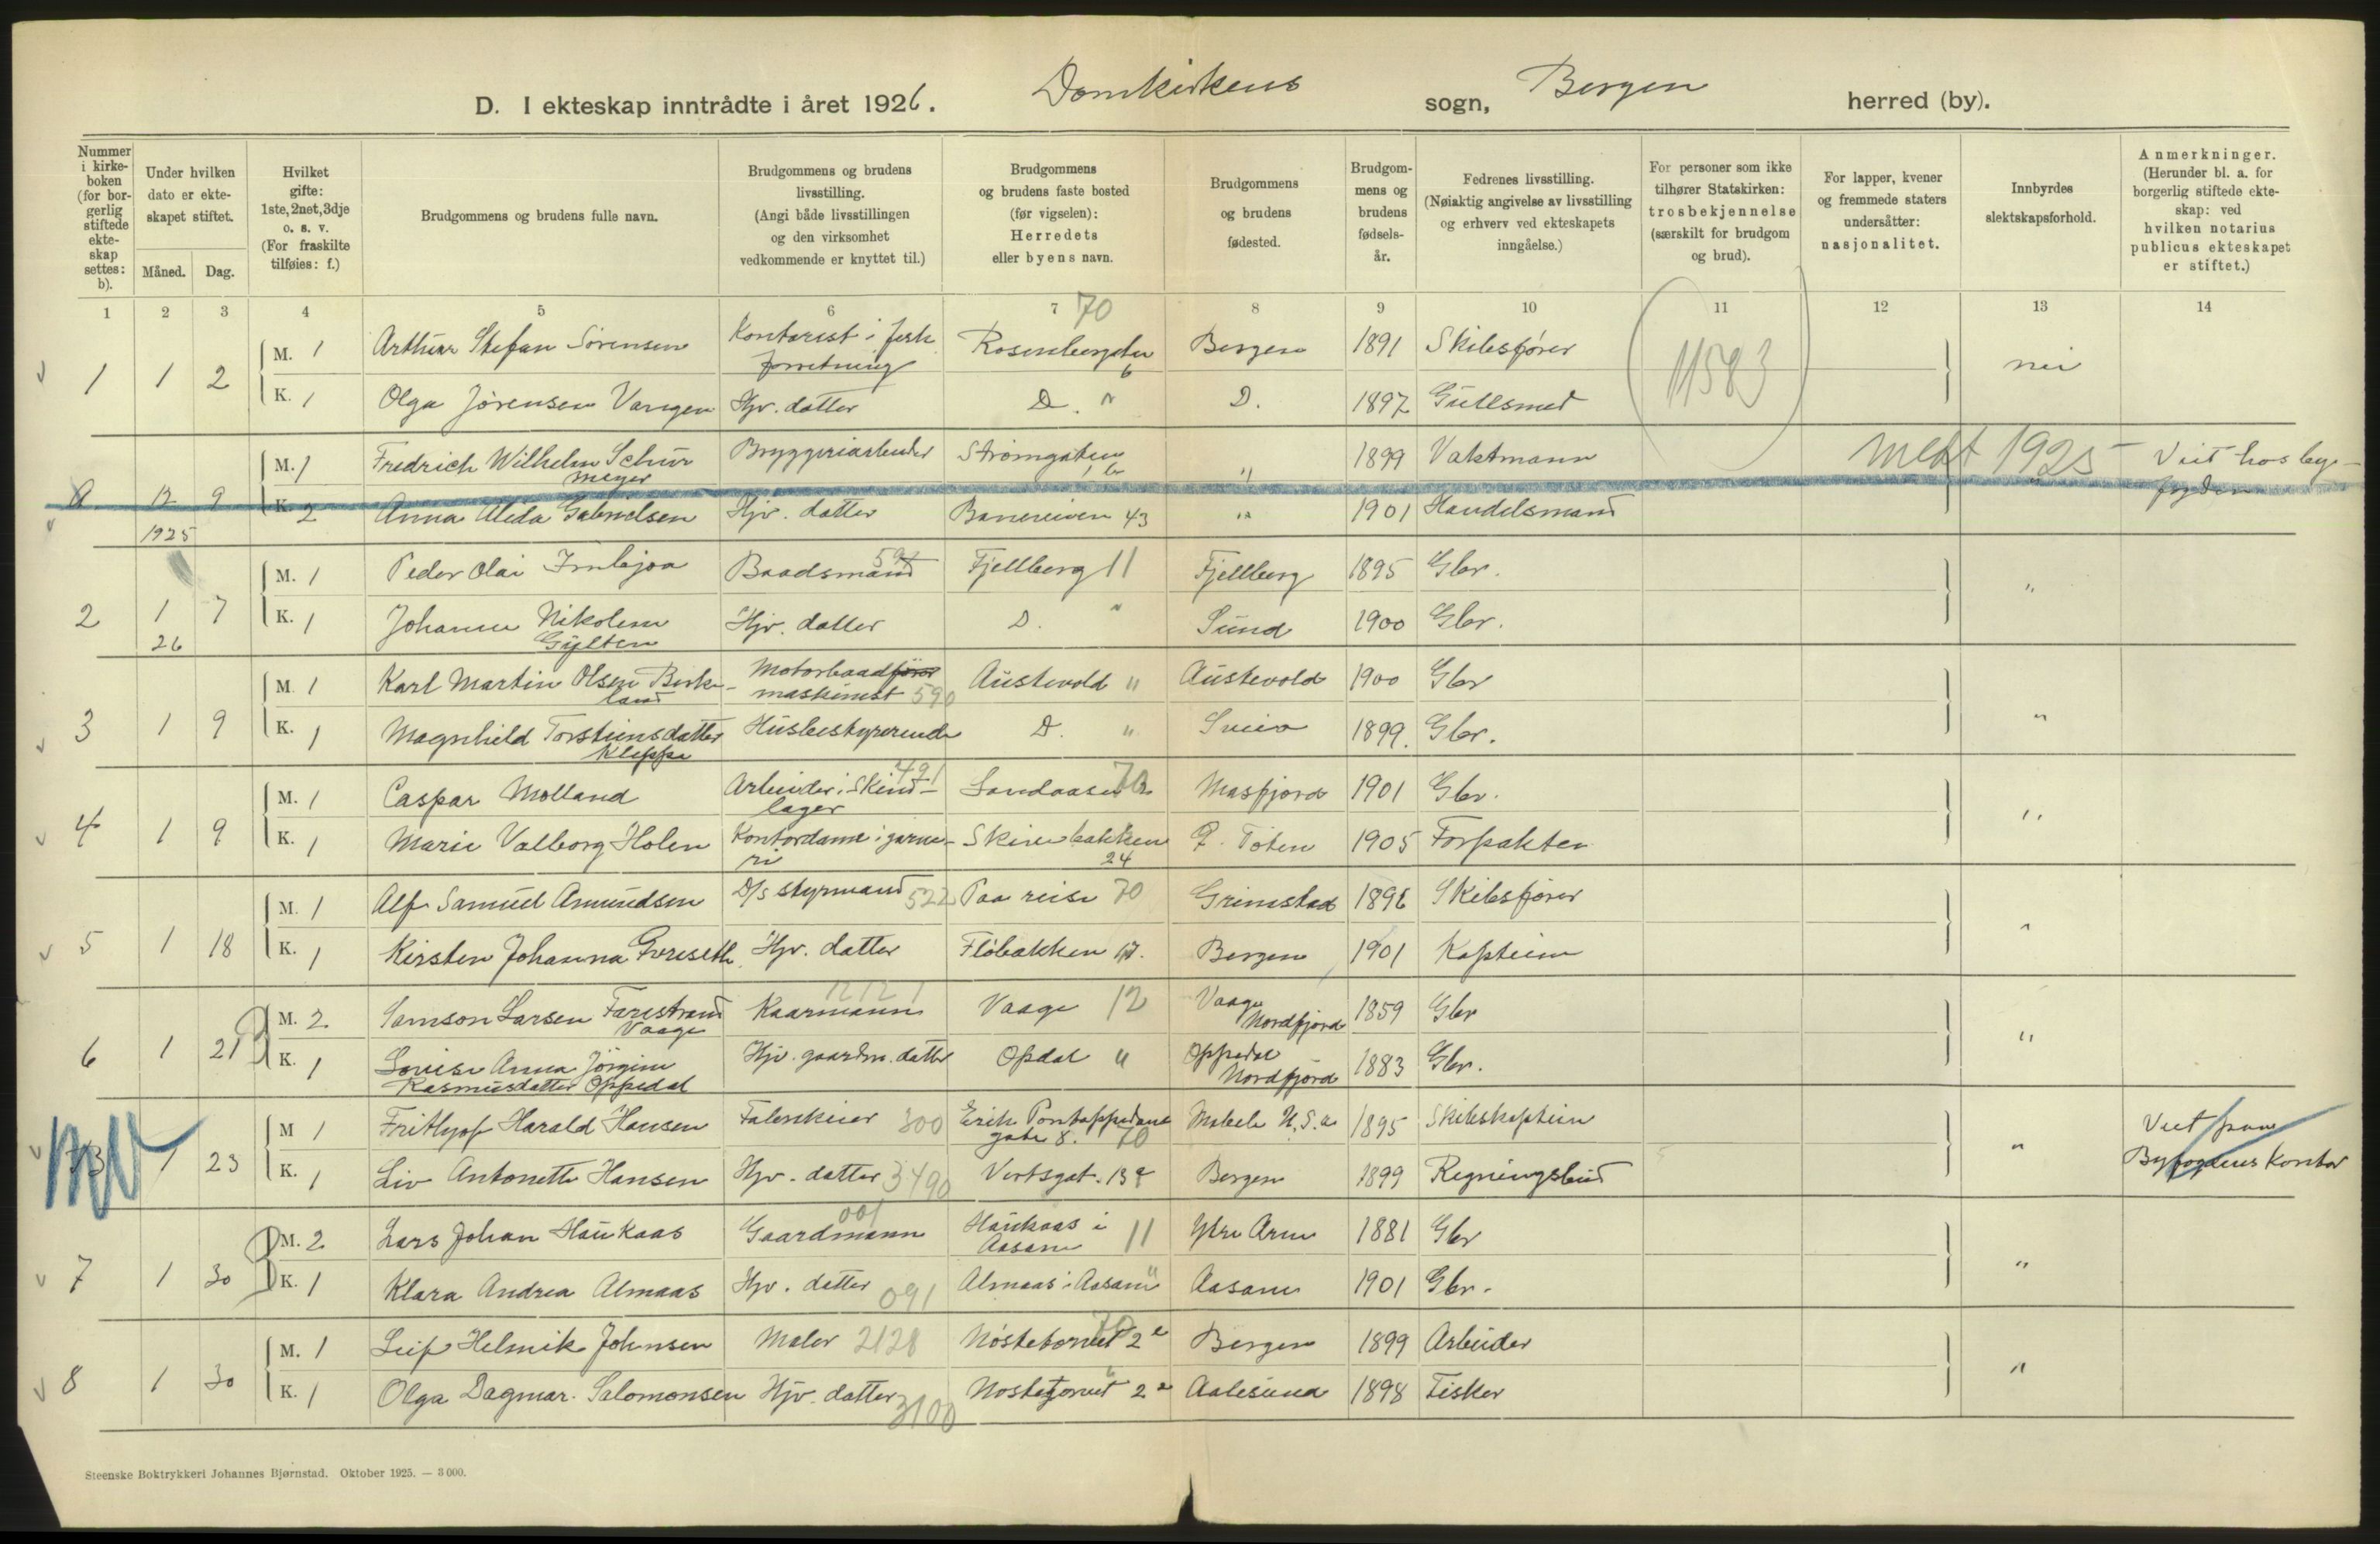 D. I ekteskap inntrådte i året 1926. Domkirkens sogn, Bergen herred (by).
Nummer i kirke-boken (for bor-gerlig stiftede ekte-skap settes: b).
Under hvilken dato er ekte-skapet stiftet.
Måned. Dag.
Hvilket gifte: 1ste, 2net, 3dje o. s. v. (For fraskilte tilføies: f.)
Brudgommens og brudens fulle navn.
Brudgommens og brudens livsstilling. (Angi både livsstillingen og den virksomhet vedkommende er knyttet til.)
Brudgommens og brudens faste bosted (før vigselen): Herredets eller byens navn.
Brudgommens og brudens fødested.
Brudgom-mens og brudens fødsels-år.
Fedrenes livsstilling. (Nøiaktig angivelse av livsstilling og erhverv ved ekteskapets inngåelse.)
For personer som ikke tilhører Statskirken: trosbekjennelse (særskilt for brudgom og brud).
For lapper, kvener og fremmede staters undersåtter: nasjonalitet.
Innbyrdes slektskapsforhold.
Anmerkninger. (Herunder bl. a. for borgerlig stiftede ekte-skap: ved hvilken notarius publicus ekteskapet er stiftet.)
1 2 3 4 5 6 7 8 9 10 11 12 13 14
70
11583
1 1 2 M. 1 Arthur Stefan Sörensen Kontorist i fisk forretning Rosenberggaten 6 Bergen 1891 Skibsfører nei
K. 1 Olga Jörensen Vangen Hjv. datter D. " D. 1897 Gullsmed
M. 1 Fredrich Wilhelm Schur Meyer Bryggeriarbeider Strømgaten " 1899 Vaktmann 1925 Viet hos by-
12 9
fogden
K. 2 Anna Alida Gabrielsen Hjv. datter Baneveien 43 " 1901 Handelsmand
1925
2 1 7 M. 1 Peder Olai Fjellberg 11 Fjellberg 1895 Gbr. "
Baadsmand
26 K. 1 Johanne Nikoline Gylten Hjv. datter D. " Sund 1900 Gbr.
3 1 9 M. 1 Karl Martin Olsen Birke-land Motorbaadfører maskinist 590 Austevold " Austevold 1900 Gbr "
K. 1 Magnhild Torsteinsdatter Kleppe Husbestyrerinde D. " Sveio 1899. Gbr.
4 1 9 M. 1 Caspar Molland Arbeider i Skind-lager 491 Landaasen 70 Masfjord 1901 Gbr. "
K. 1 Marie Valborg Holen Kontordame i garne-ri Skivebakken 24 Ø. Toten 1905 Forpakter
5 1 18 M. 1 Alf Samuel Amundsen D/s styrmand 522 Paa reise 70 Grimstad 1896 Skibsfører "
K. 1 Kirsten Johanna Hjv. datter Fløbakken 17. Bergen 1901 Kaptein
6 1 21 M. 2 Samson Larsen Farestrand Vaage Kaarmann 1212 1 Vaage 12 Vaage Nordfjord 1859 Gbr "
K. 1 Lovise Anna Jörgine Rasmusdatter Oppedal Hjv. gaardm. datter Opdal " Oppedal Nordfjord 1883 Gbr.
1 23 M 1 Frithjof Harald Hansen Fabrikeier 300 Erik Pontoppidans gate 8. 70 Mobile U.S.a 1895 Skibskaptein " Viet paa
Byfogdens Kontor
K. 1 Liv Antonette Hansen Hjv. datter 3490 Vertsgat. 13 Bergen 1899 Regningsbud
7 1 30 M. 2 Lars Johan Haukaas Gaardmann 001 Haukaas i Aasane 11 Ytre Arne 1881 Gbr "
K. 1 Klara Andrea Almaas Hjv. datter 091 Almaas i Aasane " Aasane 1901 Gbr.
8 1 30 M. 1 Leif Helmik Johnsen Maler 2128 Nøstetorvet 2 70 Bergen 1899 Arbeider "
K. 1 Olga Dagmar Salomonsen Hjv. datter 3100 Nøstetorvet 2 " Aalesund 1898 Fisker
Steenske Boktrykkeri Johannes Bjørnstad. Oktober 1925. — 3 000.